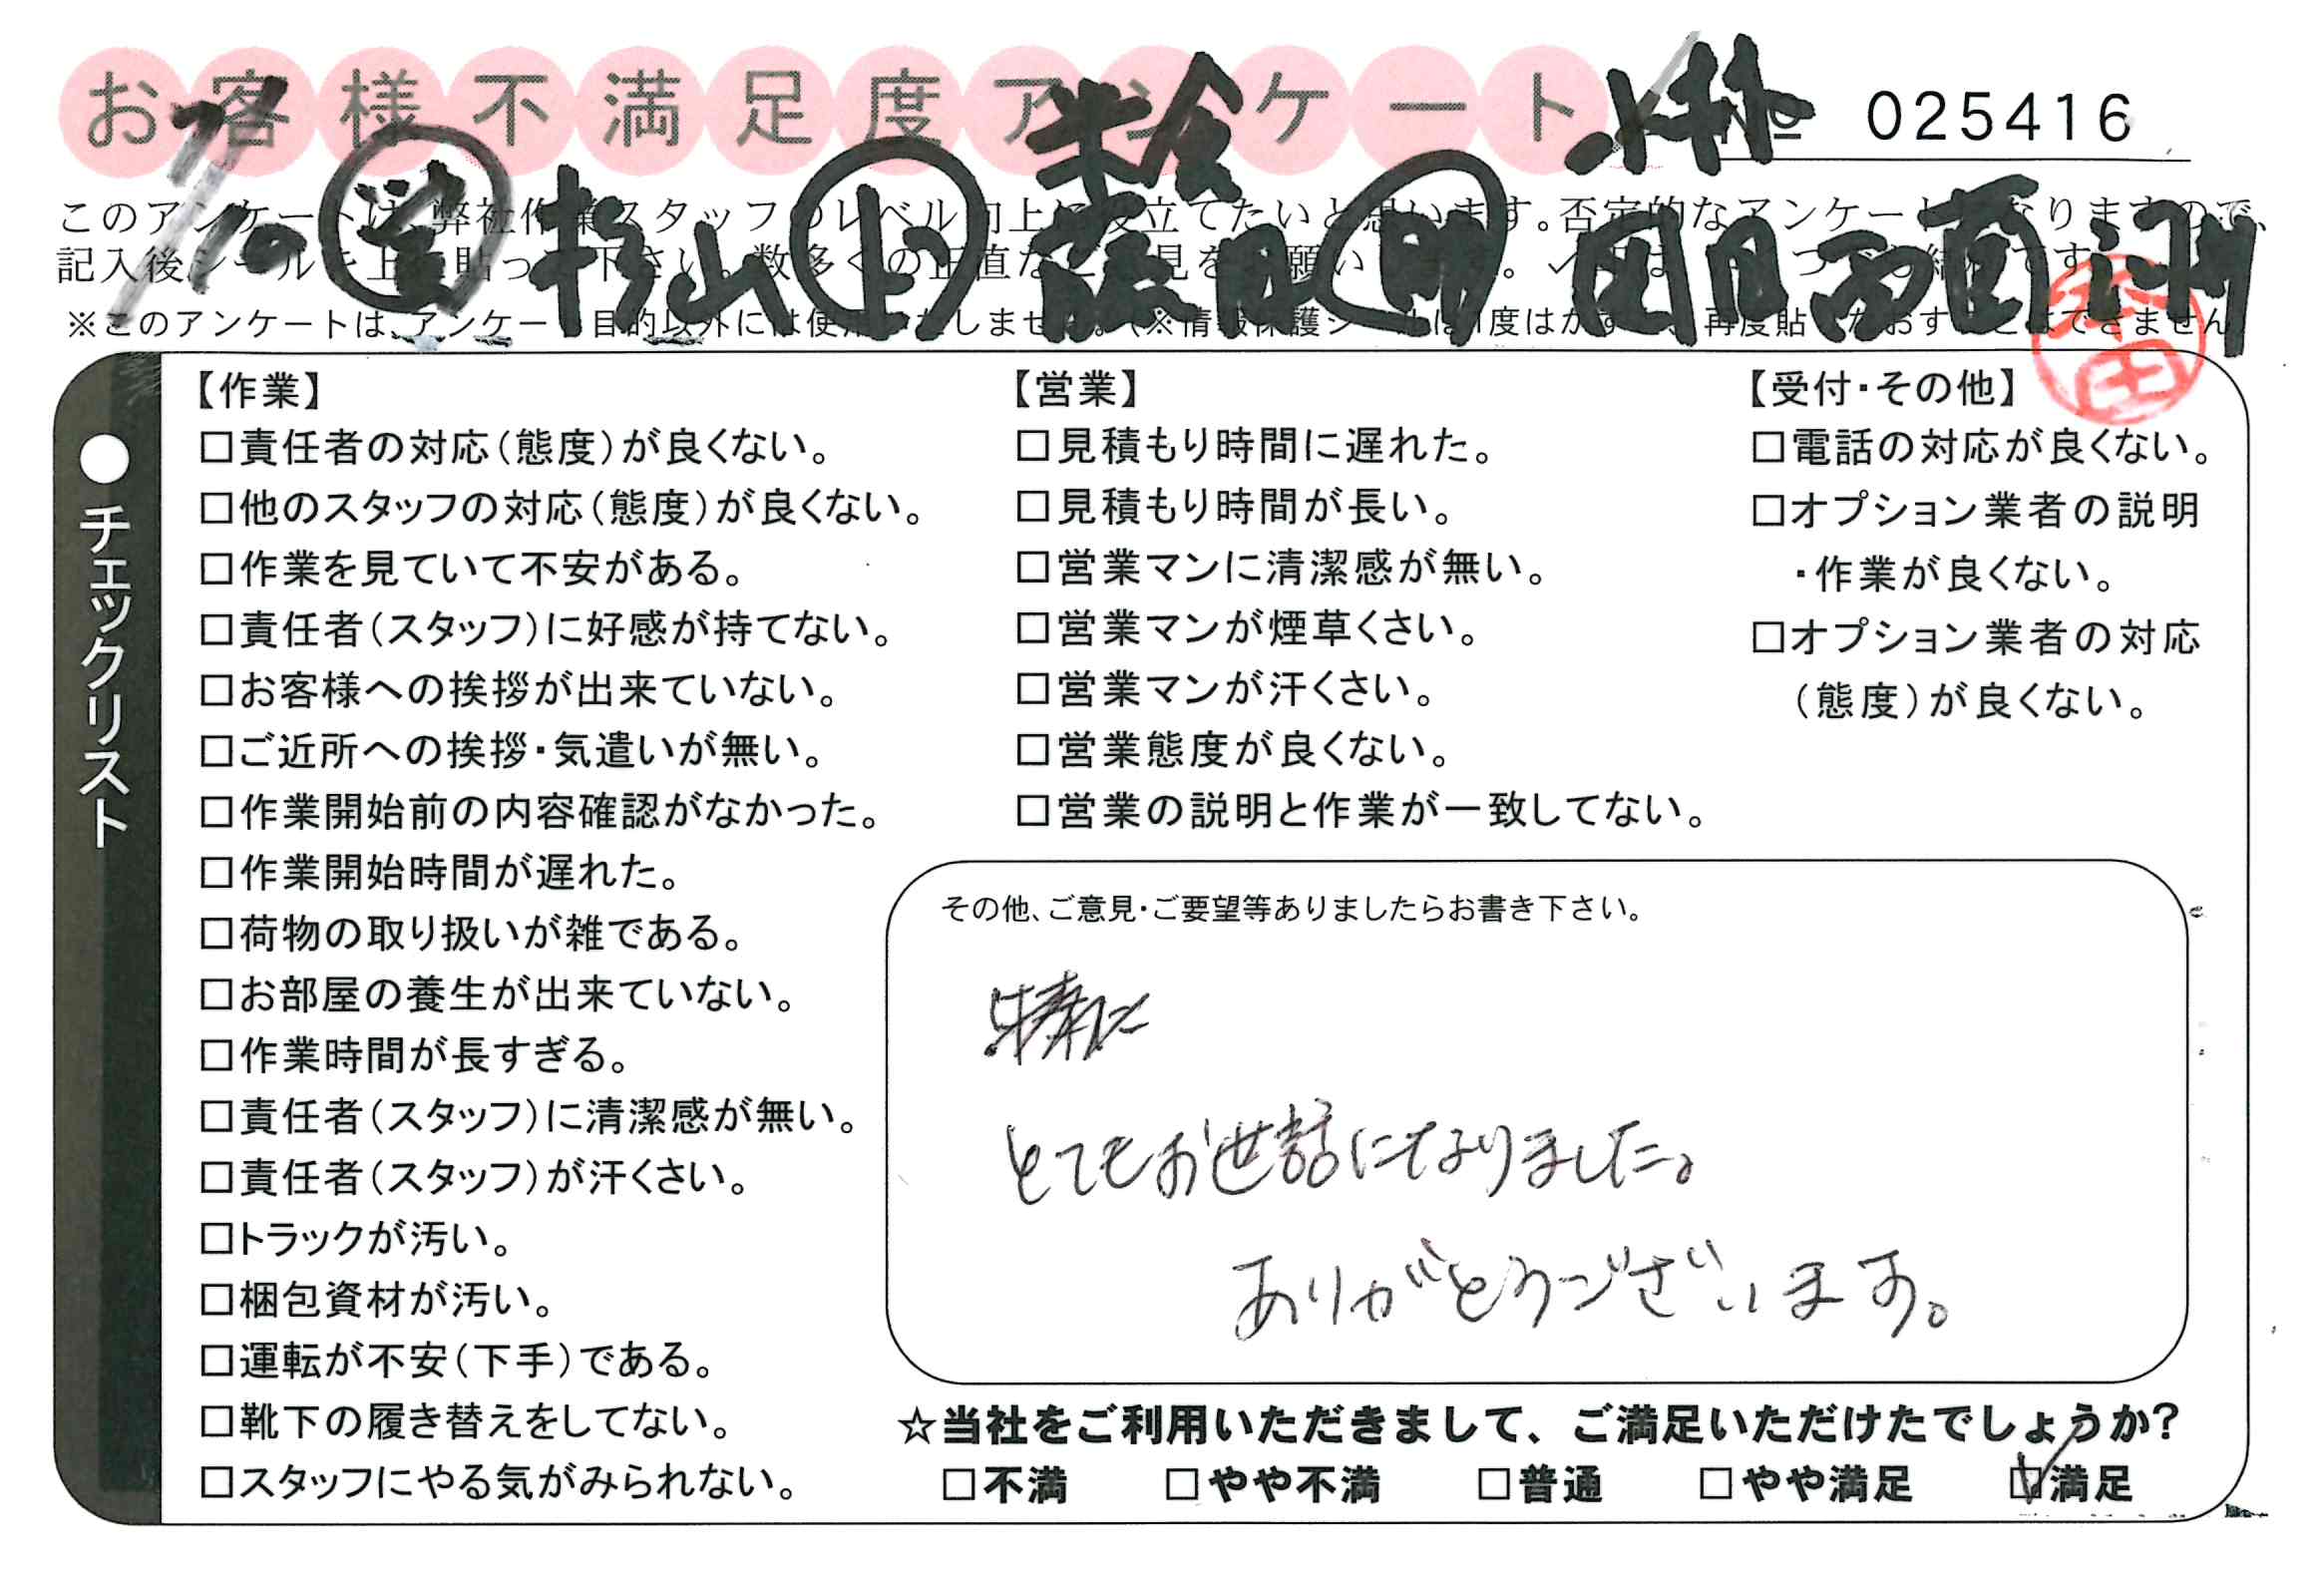 お客様不満足度アンケート № 025416
このアンケートは、弊社作業スタッフのレベル向上に役立てたいと思います。否定的なアンケートになりますので、
記入後シールを上に貼って下さい。数多くの正直なご意見をお願い
※このアンケートは、アンケート目的以外には使用いたしません。(※情報保護シールは1度はがすと、再度貼りなおすことはできません
7/10 杉山 藤田 岡田 西
●チェックリスト
【作業】
□責任者の対応(態度)が良くない。
□他のスタッフの対応(態度)が良くない。
□作業を見ていて不安がある。
□責任者(スタッフ)に好感が持てない。
□お客様への挨拶が出来ていない。
□ご近所への挨拶・気遣いが無い。
□作業開始前の内容確認がなかった。
□作業開始時間が遅れた。
□荷物の取り扱いが雑である。
□お部屋の養生が出来ていない。
□作業時間が長すぎる。
□責任者(スタッフ)に清潔感が無い。
□責任者(スタッフ)が汗くさい。
□トラックが汚い。
□梱包資材が汚い。
□運転が不安(下手)である。
□靴下の履き替えをしてない。
□スタッフにやる気がみられない。
【営業】
□見積もり時間に遅れた。
□見積もり時間が長い。
□営業マンに清潔感が無い。
□営業マンが煙草くさい。
□営業マンが汗くさい。
□営業態度が良くない。
□営業の説明と作業が一致してない。
【受付・その他】
□電話の対応が良くない。
□オプション業者の説明
・作業が良くない。
□オプション業者の対応
(態度)が良くない。
その他、ご意見・ご要望等ありましたらお書き下さい。
とてもお世話になりました。
ありがとうございます。
☆当社をご利用いただきまして、ご満足いただけたでしょうか?
□不満 □やや不満 □普通 □やや満足 ☑満足